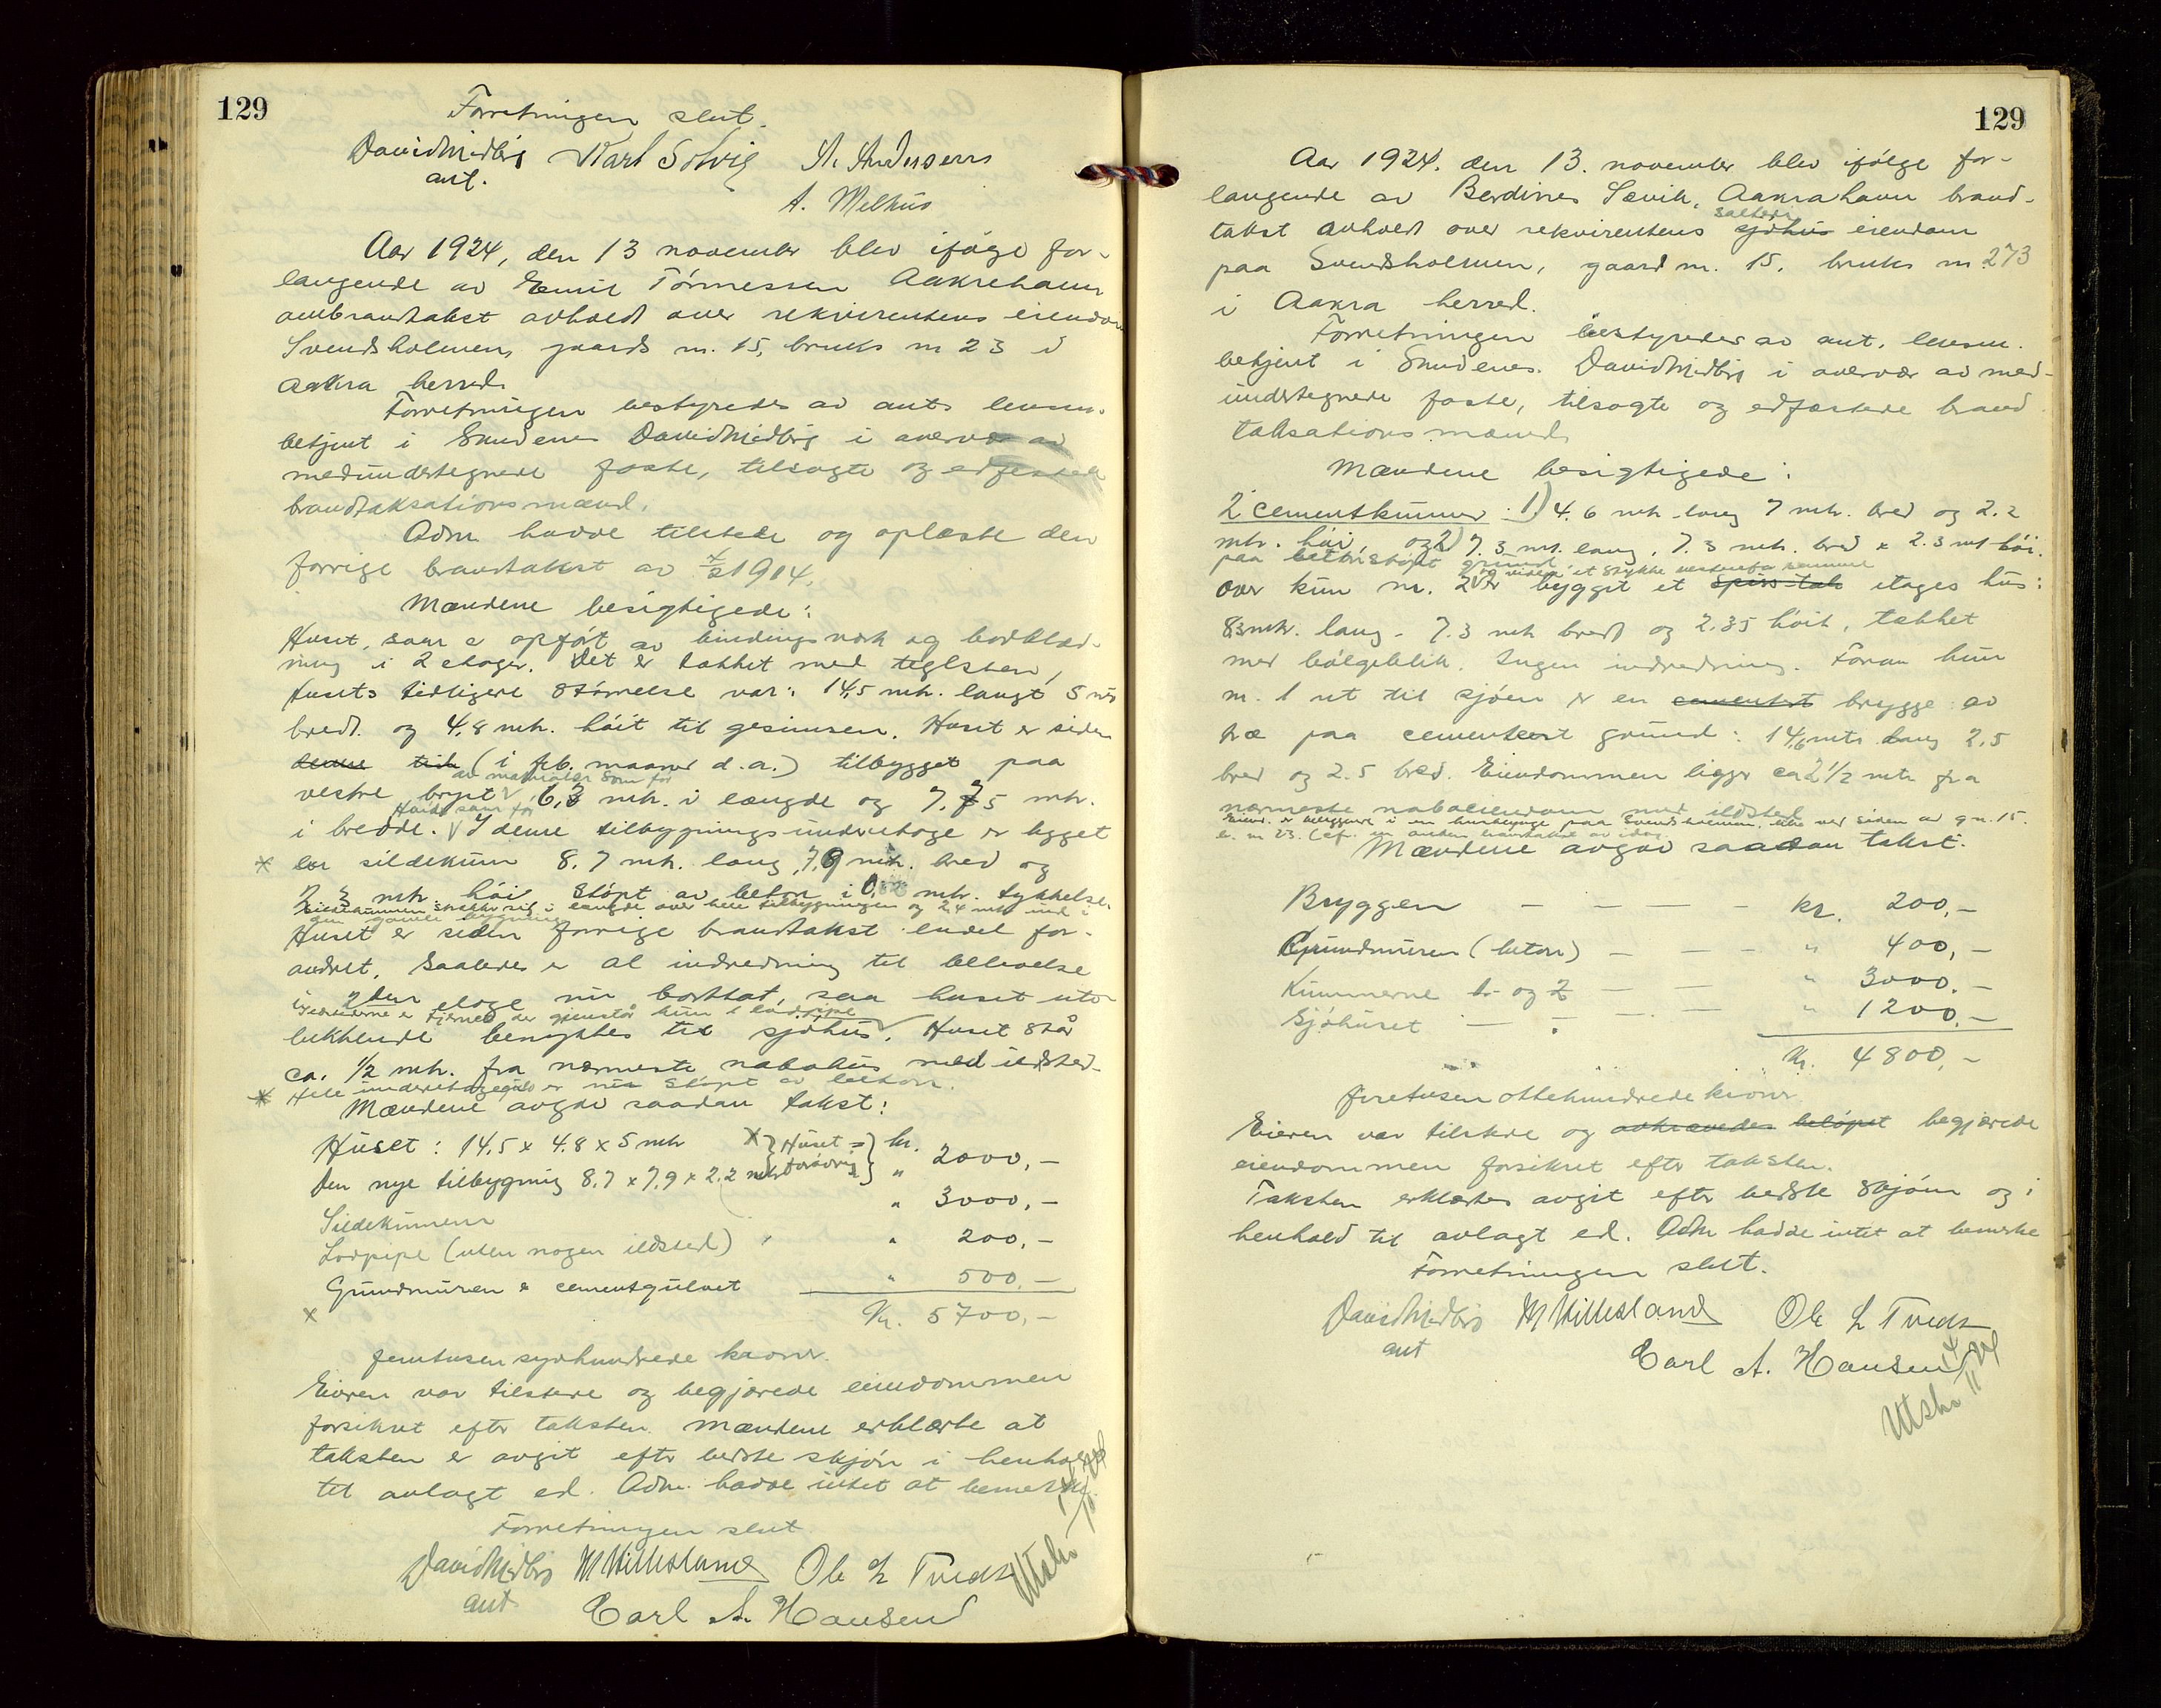 129
Forretningen slut.
David Midbøe Karl Solvig A. Andersen
aut.
A. Melhus
Aar 1924, den 13 november blev ifølge for-
langende av Emil Tónnessen Aakrehavn
ombrandtakst avholdt over rekvirentens eiendom
Svendsholmen, gaards nr. 15, bruks nr 23 i
Aakra herred.
Forretningen bestyredes av aut. lensm.
betjent i Skudenes David Midbøe i overvær av
medundertegnede faste, tilsagte og edfestede
brandtaksationsmænd.
Adm. hadde tilstede og oplæste den
forrige brandtakst av 1914.
Mændene besigtigede:
Huset, som er opført av bindingsverk og bordklæd-
ning i 2 etager. Det er tækket med teglsten,
Husets tidligere størrelse var: 14,5 mtr. langt 5 mtr
bredt og 4,8 mtr. høit til gesimsen. Huset er siden
denne tid (i feb. maaned d.a.) tilbygget paa
av materialer som før
vestre 6,3 mtr. i længde og 7,75 mtr.
Høide som før
i bredde. I denne tilbygnings underetage er bygget
en sildekum 8,7 mtr. lang, 7,9 mtr. bred og
2,3 mtr. høi støpt av beton i mtr. tykkelse.
Sildekummen strekker sig i længde over hele tilbygningen og 2,4 mtr ind i
den gamle bygning
Huset er siden forrige brandtakst endel for-
andret. Saaledes er al indredning til beboelse
i 2den etage nu borttat, saa huset ute-
Ildstederne er fjernet der gjenstår kun 1 lodpipe
lukkende benyttes til sjøhus. Huset står
ca. 1/2 mtr. fra nærmeste nabohus med ildsted.
Hele underetagegulv er nu støpt av beton.
Mændene avgav saadan takst:
Huset: 14,5 x 4,8 x 5 mtr x } Huset = } kr.
Den nye tilbygning 8,7 x 7,9 x 2,2 mtr forøvrig } " 2000,-
Sildekummen " 3000,-
Lodpipe (uten nogen ildsted) " 200,-
Grundmuren & cementgulvet " 500,-
x Kr. 5700,-
femtusen syvhundrede kroner.
Eieren var tilstede og begjærede eiendommen
forsikret efter taksten. Mændene erklærte at
taksten er avgit efter bedste skjøn i henhold
til avlagt ed. Adm. hadde intet at bemerke.
Forretningen slut.
David Midbøe M Hillesland Ole L Tveds
aut Carl A. Hansen
Utskr.
129
Aar 1924. den 13. november blev ifølge for-
langende av Berdines Sævik, Aakrahavn brand-
salteri
takst avholdt over rekvirentens sjøhus eiendom
paa Svendsholmen, gaard nr. 15. bruks nr 273
i Aakra herred.
Forretningen bestyredes av aut. lensm.
betjent i Skudenes. David Midbøe i overvær av med-
undertegnede faste, tilsagte og edfæstede brand
taksationsmænd.
Mændene besigtigede:
2 cementkummer: 1) 4.6 mtr lang 7 mtr. bred og 2.2
mtr. høi og 2) 7.3 mt. lang, 7.3 mtr. bred x 2.3 mt høi.
paa betonstøpt grund
og videre et stykke vestenfor kummene
Over kum nr. 2 er bygget et spiss tak etages hus:
8.3 mtr. lang - 7.3 mtr bredt og 2.35 høit, tækket
med bølgeblik. Ingen indredning. Foran kum
nr. 1 ut til sjøen er en cementert brygge av
træ paa cementert grund: 14,6 mtr lang 2,5
bred og 2.5 bred. Eiendommen ligger ca 2 1/2 mtr fra
nærmeste naboeiendom med ildsted
Mændene avgav saadan takst.
Bryggen — — — — kr. 200,-
Grundmuren (beton) — — — " 400,-
Kummerne 1- og 2 — — " 3000.-
Sjøhuset — — — — " 1200.-
Kr. 4800,-
firetusen ottehundrede kroner
Eieren var tilstede og avkrævedes beløpet begjærede
eiendommen forsikret efter taksten.
Taksten erklærtes avgit efter bedste skjøn og i
henhold til avlagt ed. Adm hadde intet at bemerke
Forretningen slut.
David Midbøe M Hillesland Ole L Tveds
aut Carl A. Hansen
Utskr.